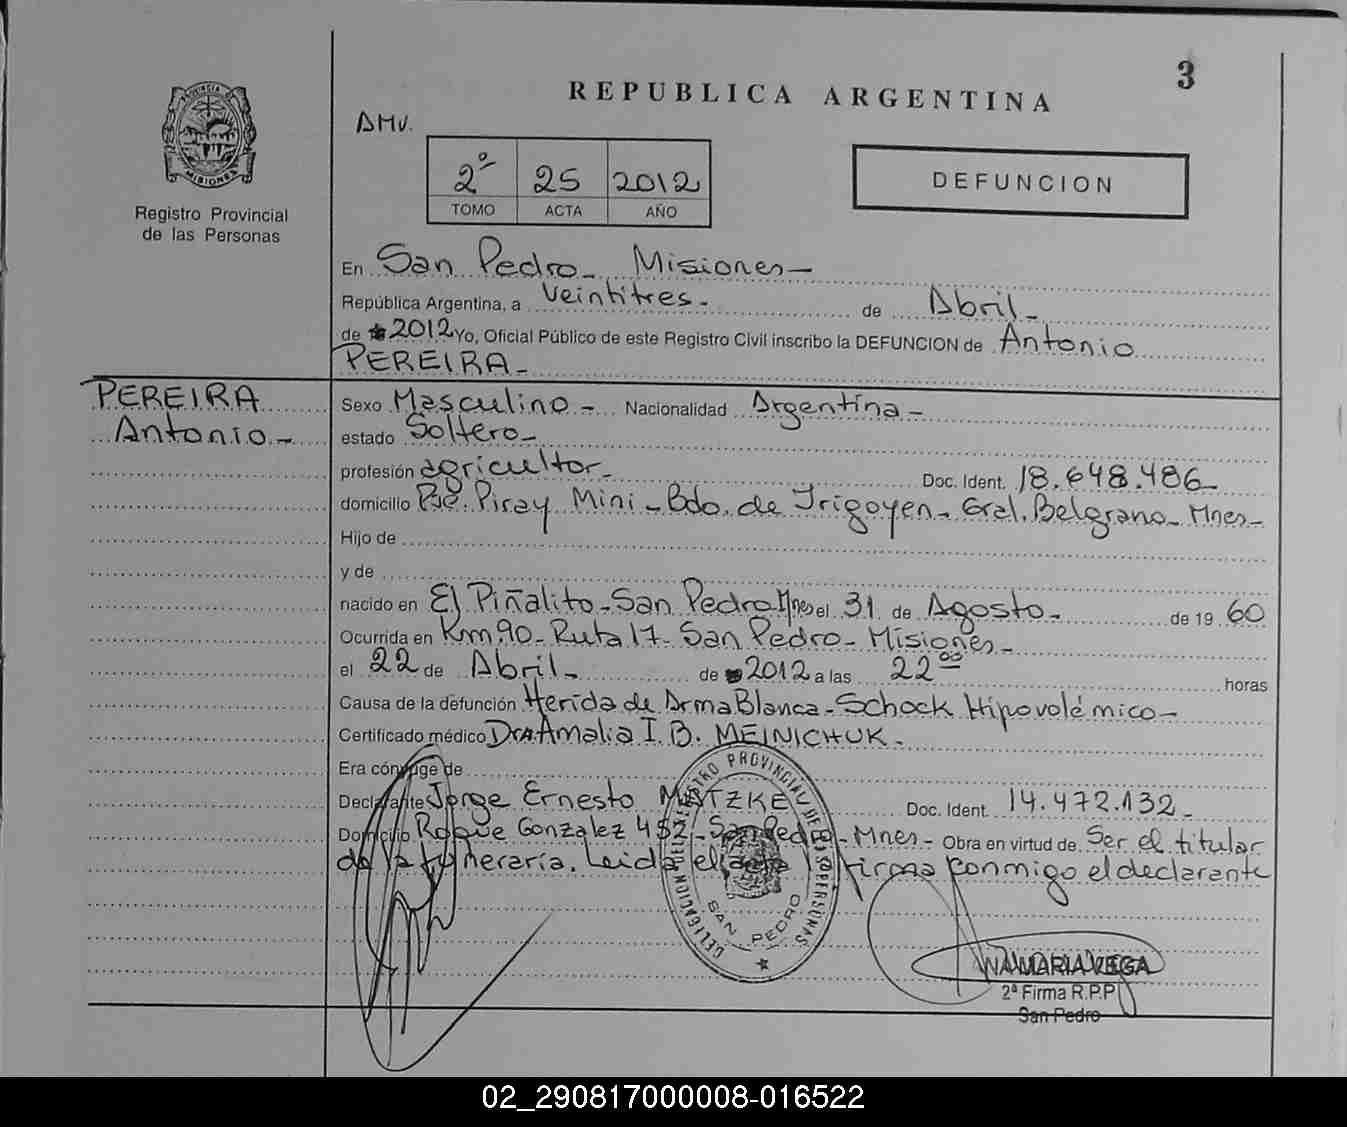 3
REPUBLICA ARGENTINA
PROVINCIA DE
MISIONES
Registro Provincial
de las Personas
DMV.
2º 25 2012
TOMO ACTA AÑO
DEFUNCION
En San Pedro - Misiones -
República Argentina, a Veintitres - de Abril -
de 2012 Yo, Oficial Público de este Registro Civil inscribo la DEFUNCION de Antonio
PEREIRA -
PEREIRA
Antonio -
Sexo Masculino - Nacionalidad Argentina -
estado Soltero -
profesión agricultor - Doc. Ident. 18.648.486 -
domicilio Pje. Piray Mini - Bdo. de Irigoyen - Gral. Belgrano - Mnes -
Hijo de
y de
nacido en El Piñalito - San Pedro Mnes el 31 de Agosto - de 19 60
Ocurrida en Km 90 - Ruta 17 - San Pedro - Misiones -
el 22 de Abril - de 2012 a las 22 00 horas
Causa de la defunción Herida de Arma Blanca - Schock Hipovolémico -
Certificado médico Dra Amalia I. B. MEINICHUK -
Era cónyuge de
Declarante Jorge Ernesto MATZKE Doc. Ident. 14.472.132 -
Domicilio Roque Gonzalez 452 - San Pedro - Mnes - Obra en virtud de Ser el titular
de la funeraria. Leida el acta firma conmigo el declarante
DELEGACION DEL REGISTRO PROVINCIAL DE LAS PERSONAS
SAN PEDRO
ANA MARIA VEGA
2ª Firma R.P.P.
San Pedro
02_290817000008-016522